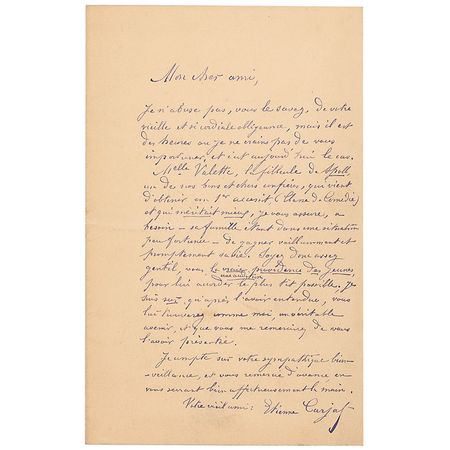 Mon cher ami,
Je n'abuse pas, vous le savez, de votre
vieille et si cordiale obligeance, mais il est
des heures où je ne crains pas de vous
importuner, et c'est aujourd'hui le cas.
Melle Valette, la filleule de
un de nos bons et chers confrères, qui vient
d'obtenir un 1er accessit, (Classe de Comédie)
et qui méritait mieux, je vous assure, a
besoin – sa famille étant dans une situation
peu fortunée – de gagner vaillamment et
promptement sa vie. Soyez donc assez
gentil, vous la vraie providence des jeunes
pour lui accorder le plus tôt possible. Je
une audition
suis sûr, qu'après l'avoir entendue, vous
lui trouverez comme moi, un véritable
avenir, et que vous me remercierez de vous
l'avoir présentée.
Je compte sur votre sympathique bien-
veillance, et vous remercie d'avance en
vous serrant bien affectueusement la main.
Votre vieil ami: Etienne Carjat